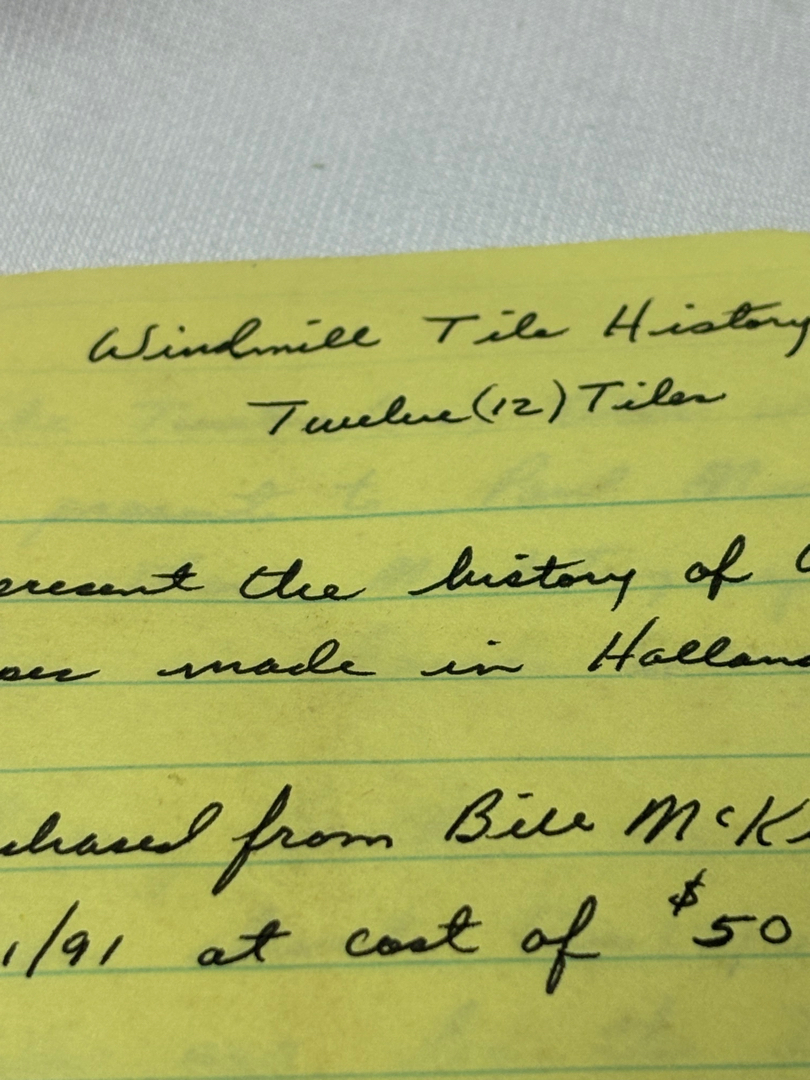 Windmill Tile History
Twelve (12) Tiles
present the history of
made in Holland
chased from Bill McK
1/91 at cost of $50